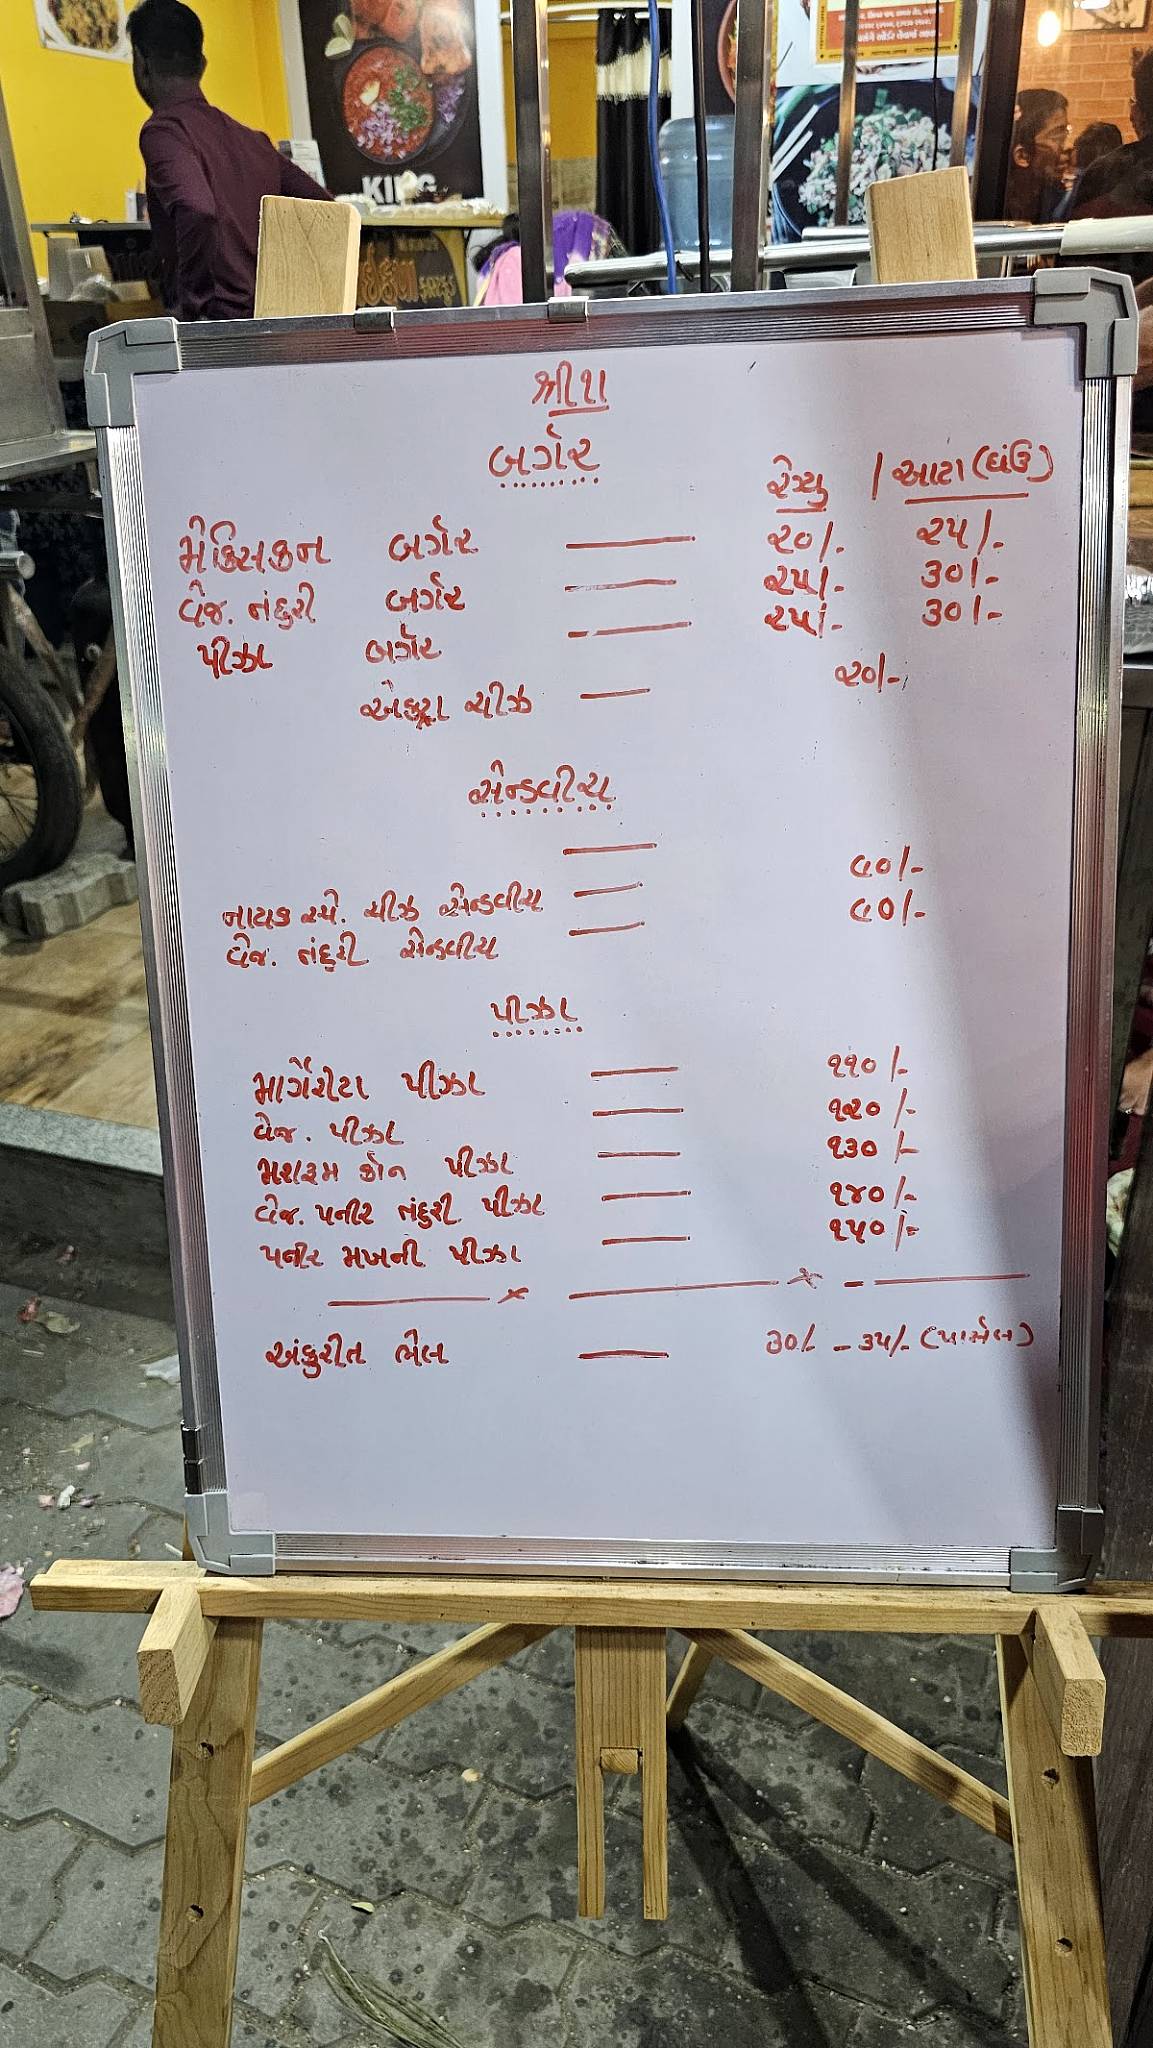 KING
શ્રી૧ા
બર્ગર
રેગ્યુ / આટા (ઘંઉ)
મેક્સિકન બર્ગર — ૨૦/- ૨૫/-
વેજ. તંદુરી બર્ગર — ૨૫/- ૩૦/-
પીઝા બર્ગર — ૨૫/- ૩૦/-
એકસ્ટ્રા ચીઝ — ૨૦/-
સેન્ડવીચ
ચીઝ સેન્ડવીચ — ૮૦/-
વેજ. તંદુરી સેન્ડવીચ — ૮૦/-
પીઝા
માર્ગેરીટા પીઝા — ૧૧૦/-
વેજ. પીઝા — ૧૨૦/-
મશરૂમ કોન પીઝા — ૧૩૦/-
વેજ. પનીર તંદુરી પીઝા — ૧૪૦/-
પનીર મખની પીઝા — ૧૫૦/-
અંકુરીત ભેલ — ૩૦/- - ૩૫/- (પાર્સલ)